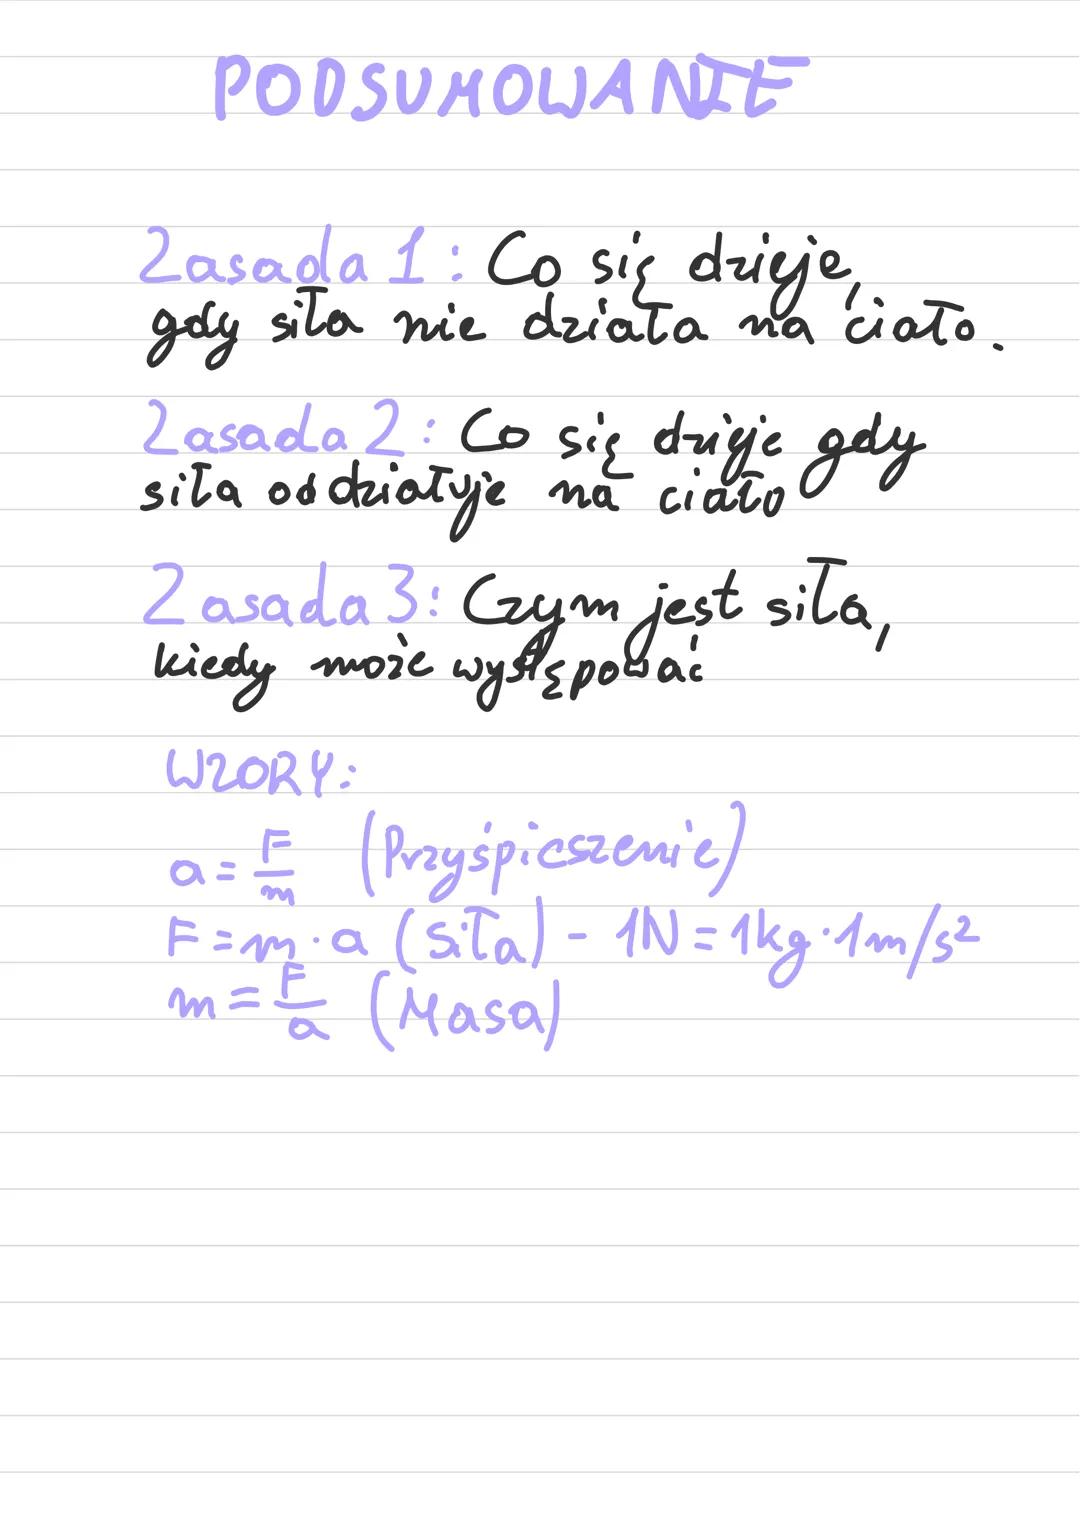 PODSUMOWANIE
Zasada 1: Co się dzieje,
gdy siła nie działa na ciało.
Zasada 2: Co się dzieje gdy
siła oddziałuje na ciało
Zasada 3: Czym jest siła,
kiedy może występować
WZORY:
a = F/m (Przyśpieszenie)
F = m · a (siła) - 1N = 1kg · 1m/s²
m = F/a (Masa)